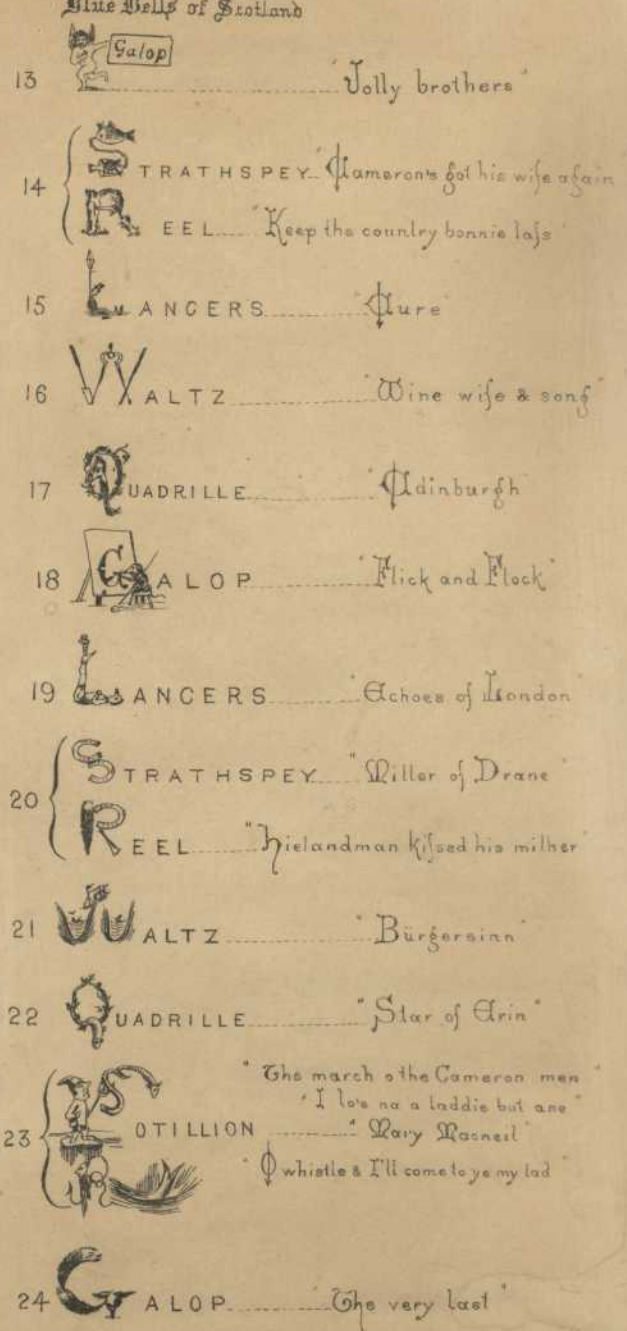 Blue Bells of Scotland
13 Galop "Jolly brothers"
14 STRATHSPEY "Cameron's got his wife again
REEL "Keep the country bonnie lass
15 LANCERS "Cure"
16 WALTZ "Wine wife & song"
17 QUADRILLE "Edinburgh
18 GALOP "Flick and Flock"
19 LANCERS "Echoes of London"
20 STRATHSPEY "Miller of Drane"
REEL "Hielandman kissed his mither"
21 WALTZ "Bürgersinn"
22 QUADRILLE "Star of Erin"
"The march o the Cameron men"
"I lo'e na a laddie but ane"
23 COTILLION "Mary Macneil"
"O whistle & I'll come to ye my lad"
24 GALOP "The very last"